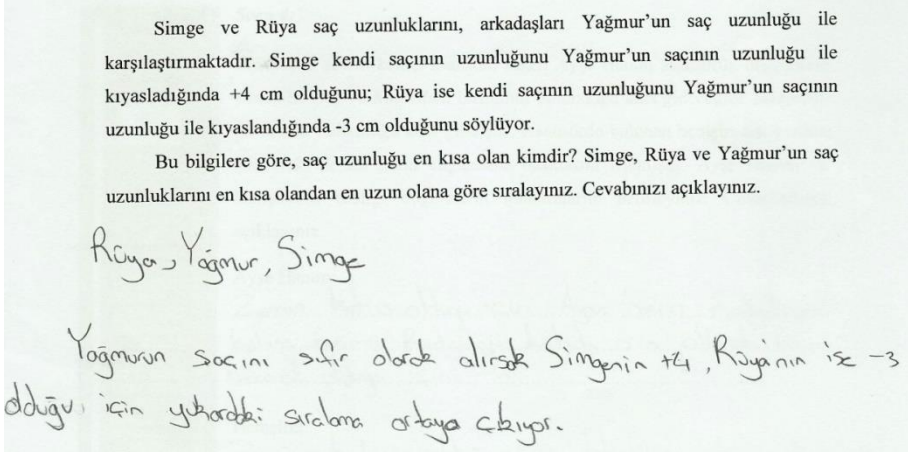 Simge ve Rüya saç uzunluklarını, arkadaşları Yağmur'un saç uzunluğu ile
karşılaştırmaktadır. Simge kendi saçının uzunluğunu Yağmur'un saçının uzunluğu ile
kıyasladığında +4 cm olduğunu; Rüya ise kendi saçının uzunluğunu Yağmur'un saçının
uzunluğu ile kıyaslandığında -3 cm olduğunu söylüyor.
Bu bilgilere göre, saç uzunluğu en kısa olan kimdir? Simge, Rüya ve Yağmur'un saç
uzunluklarını en kısa olandan en uzun olana göre sıralayınız. Cevabınızı açıklayınız.
Rüya, Yağmur, Simge
Yağmurun saçını sıfır olarak alırsak Simgenin +4, Rüya'nın ise -3
olduğu için yukarıdaki sıralama ortaya çıkıyor.